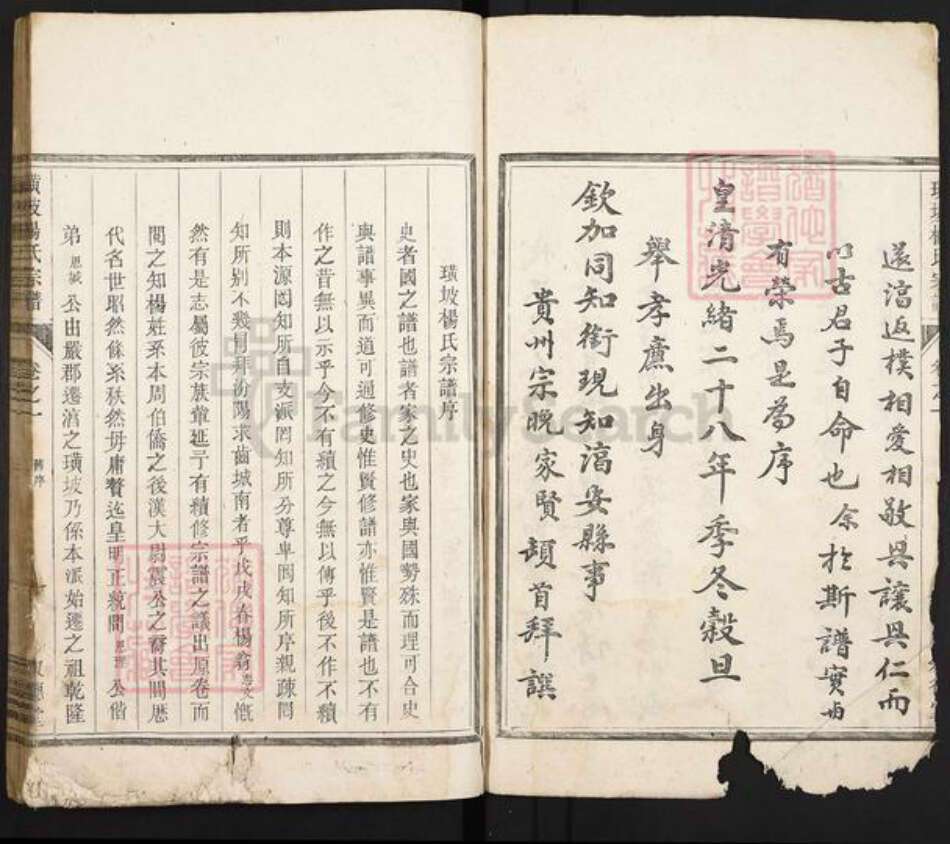 還滈返樸相愛相敬興讓興仁而
以古君子自命也余於斯譜實與
有榮焉是為序
皇清光緒二十八年季冬穀旦
舉孝廉出身
欽加同知銜現知滈安縣事
貴州宗晚家賢頓首拜譔
璜坡楊氏宗譜序
史者國之譜也譜者家之史也家與國勢殊而理可合史
與譜事異而道可通修史惟賢修譜亦惟賢是譜也不有
作之昔無以示乎今不有續之今無以傳乎後不作不續
則本源罔知所自支派罔知所分尊卑罔知所序親疎罔
知所别不幾同拜汾陽求齒城南者乎戊戌春楊翁志文慨
然有是志屬彼宗族輩延予有續修宗譜之議出原卷而
閱之知楊姓系本周伯僑之後漢大尉震公之裔其間歷
代名世昭然條系秩然毋庸贅迄皇明正統間 公偕
弟思誠公由嚴郡遷滈之璜坡乃係本派始遷之祖乾隆
璜坡楊氏宗譜
卷之一
舊序
FamilySearch